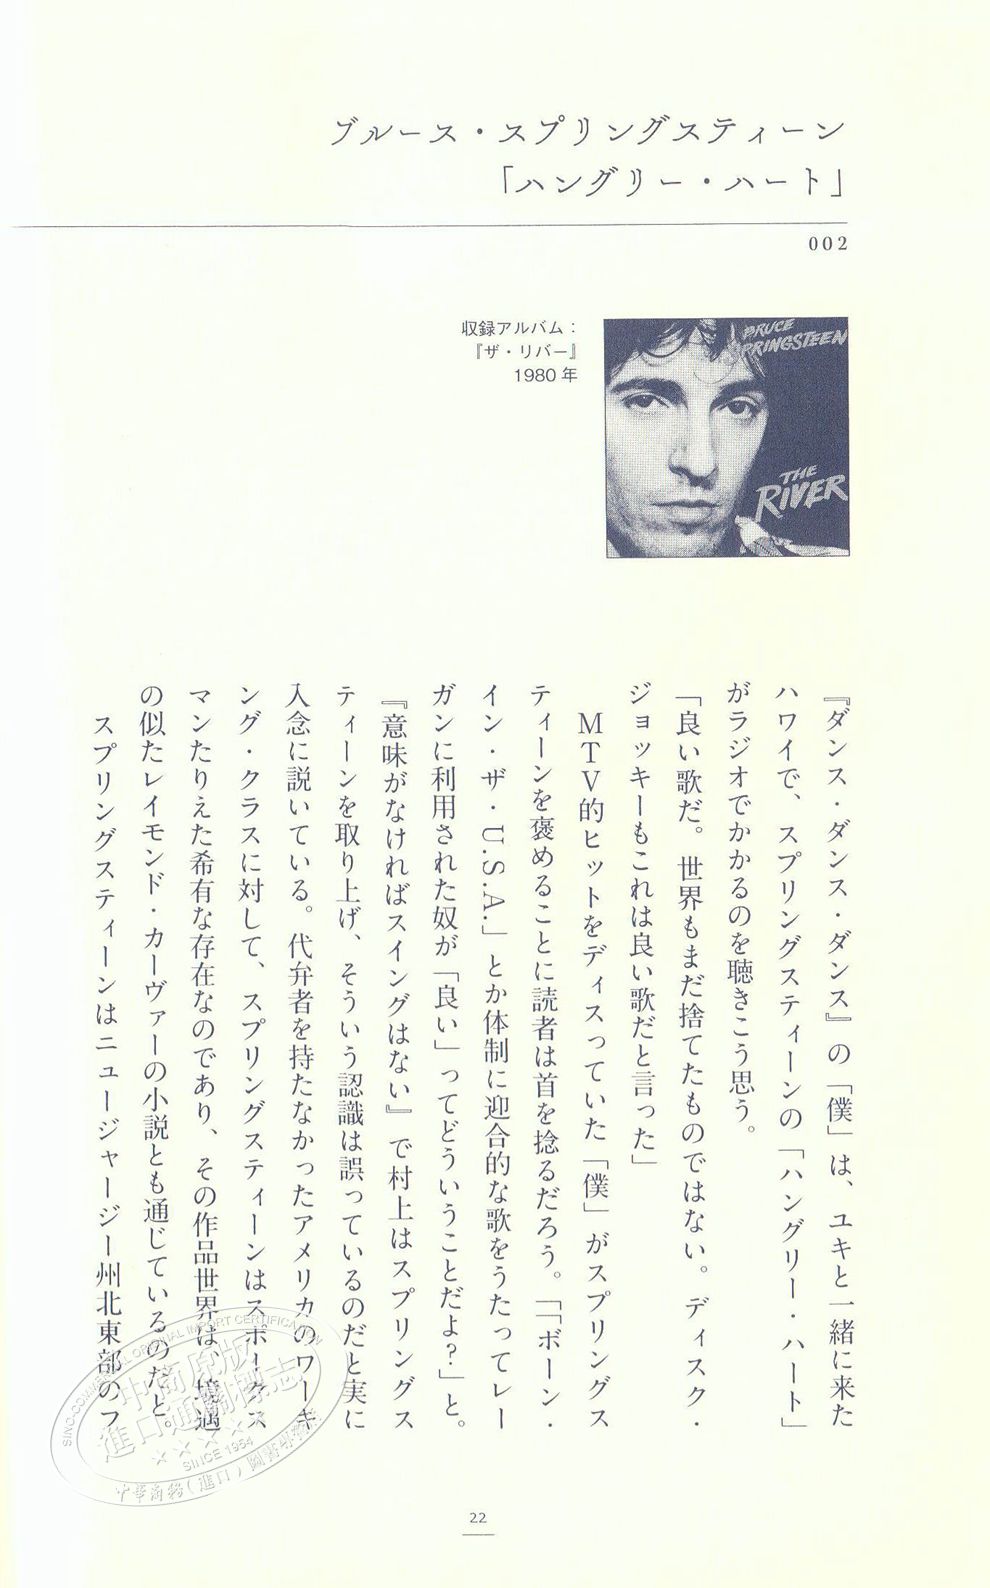 ブルース・スプリングスティーン
「ハングリー・ハート」
002
収録アルバム：
『ザ・リバー』
1980年
BRUCE
SPRINGSTEEN
THE
RIVER
『ダンス・ダンス・ダンス』の「僕」は、ユキと一緒に来た
ハワイで、スプリングスティーンの「ハングリー・ハート」
がラジオでかかるのを聴きこう思う。
「良い歌だ。世界もまだ捨てたものではない。ディスク・
ジョッキーもこれは良い歌だと言った」
MTV的ヒットをディスっていた「僕」がスプリングス
ティーンを褒めることに読者は首を捻るだろう。「「ボーン・
イン・ザ・U.S.A.」とか体制に迎合的な歌をうたってレー
ガンに利用された奴が「良い」ってどういうことだよ？」と。
『意味がなければスイングはない』で村上はスプリングス
ティーンを取り上げ、そういう認識は誤っているのだと実に
入念に説いている。代弁者を持たなかったアメリカのワーキ
ング・クラスに対して、スプリングスティーンはスポークス
マンたりえた希有な存在なのであり、その作品世界は、境遇
の似たレイモンド・カーヴァーの小説とも通じているのだと。
スプリングスティーンはニュージャージー州北東部のフ
SINO-COMMERCIAL ORIGINAL IMPORT CERTIFICATION
中商原版
進口通關標志
SINCE 1954
22